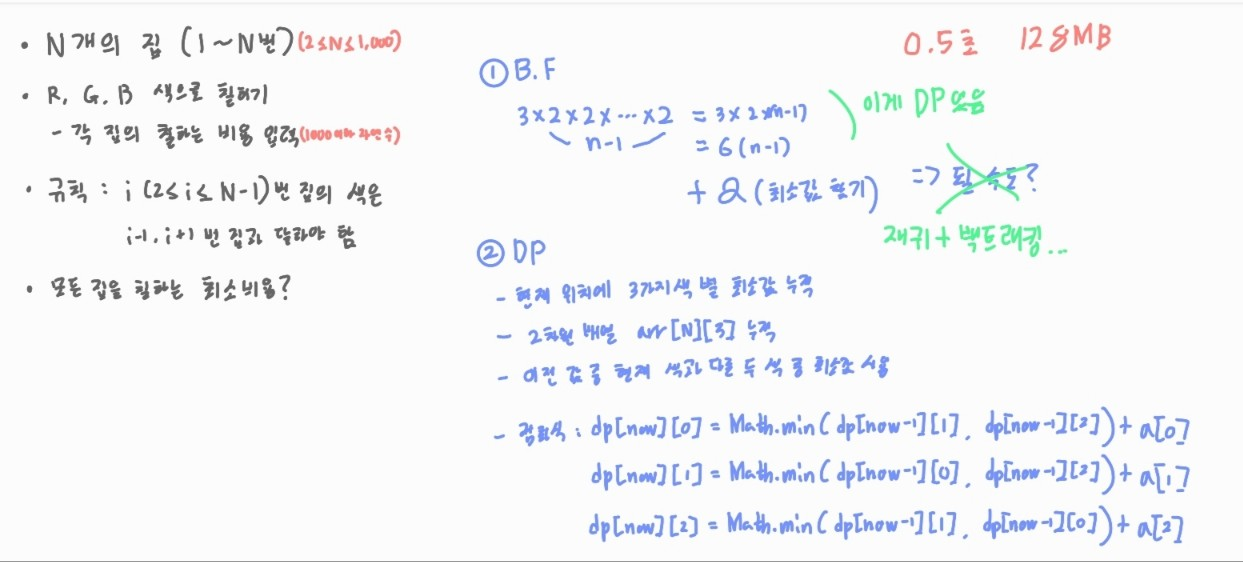 • N개의 집 (1~N번) (2≤N≤1,000)
• R, G, B 색으로 칠하기
- 각 집의 칠하는 비용 입력 (1000이하 자연수)
• 규칙 : i (2≤i≤N-1)번 집의 색은
i-1, i+1 번 집과 달라야 함
• 모든 집을 칠하는 최소비용?
0.5초 128MB
① B.F
3×2×2×…×2 = 3×2×(n-1)
n-1 = 6(n-1)
+ α (최소값 찾기)
이게 DP였음
=> 될 수도?
재귀+백트래킹...
② DP
- 현재 위치에 3가지 색 별 최솟값 누적
- 2차원 배열 arr[N][3] 누적
- 이전 값 중 현재 색과 다른 두 색 중 최솟값 사용
- 점화식 : dp[now][0] = Math.min( dp[now-1][1], dp[now-1][2]) + a[0]
dp[now][1] = Math.min( dp[now-1][0], dp[now-1][2]) + a[1]
dp[now][2] = Math.min( dp[now-1][1], dp[now-1][0]) + a[2]